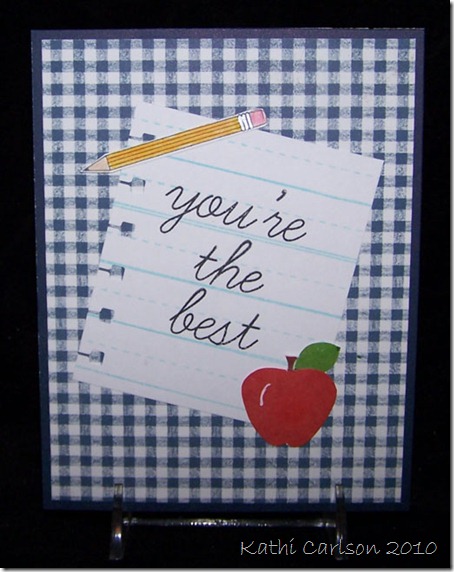 you're
the
best
Kathi Carlson 2010